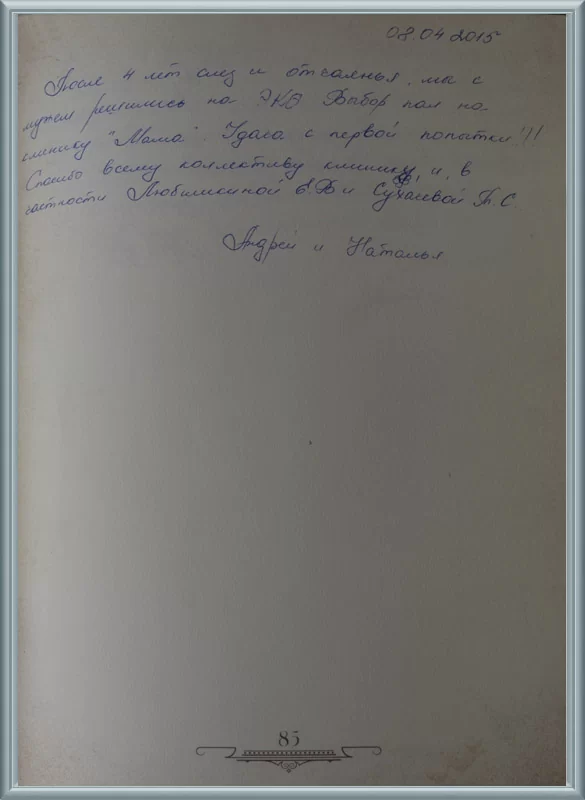 08.04 2015
После 4 лет слез и отчаянья, мы с
мужем решились на ЭКО Выбор пал на
клинику "Мама". Удача с первой попытки!!!
Спасибо всему коллективу клиники и, в
частности Е.В и Сухачевой Т.С.
Андрей и Наталья
85